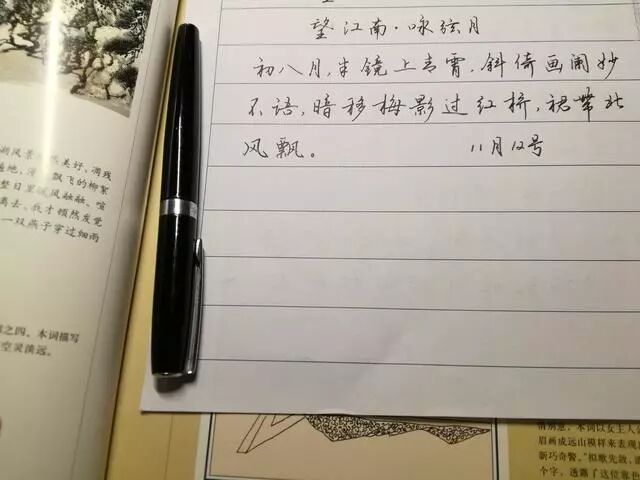 望江南·咏弦月
初八月,半镜上青霄,斜倚画阑妙
不语,暗移梅影过红桥,裙带北
风飘。 11月12号
湖风景
美好,凋残
遍地,
飘飞的柳絮
整日里暖风融融、喧
离去,我才顿然发觉
一双燕子穿过细雨
之四、本词描写
空灵淡远。
情别意,本词以女主人公
眉画成远山模样来表现
新巧奇警。"拟歌先敛,
个字,透露了这位